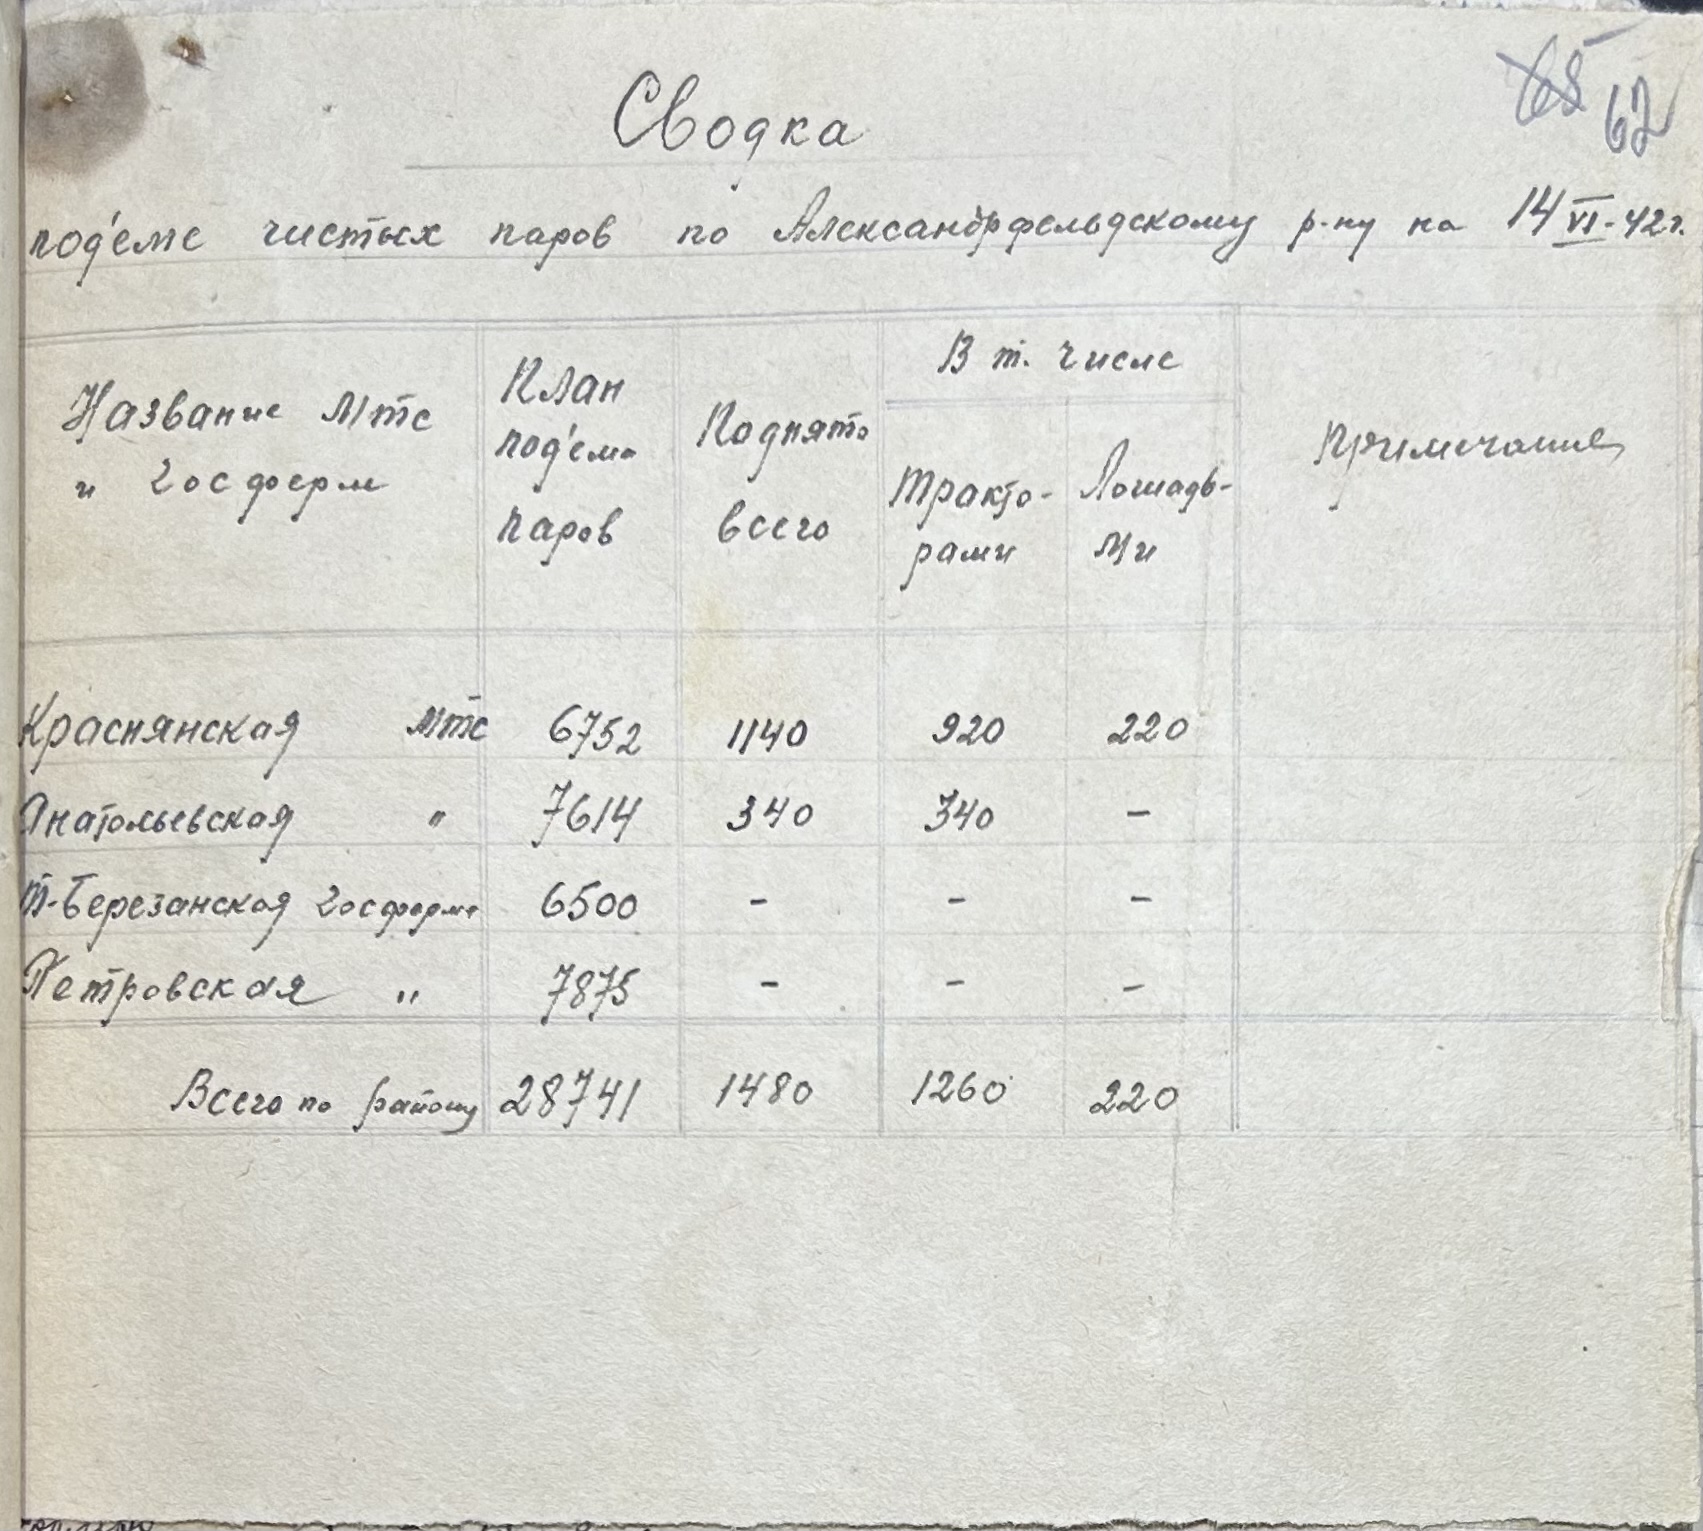 62
Сводка
под'еме чистых паров по Александрфельдскому р-ну на 14 VI-42 г.
Название МТС и Госферм
План под'ема паров
Поднято всего
В т. числе
Тракто-рами
Лошадь-ми
Примечание
Краснянская МТС 6752 1140 920 220
Анатольевская " 7614 340 340 -
Т-Березанская Госферма 6500 - - -
Петровская " 7875 - - -
Всего по району 28741 1480 1260 220